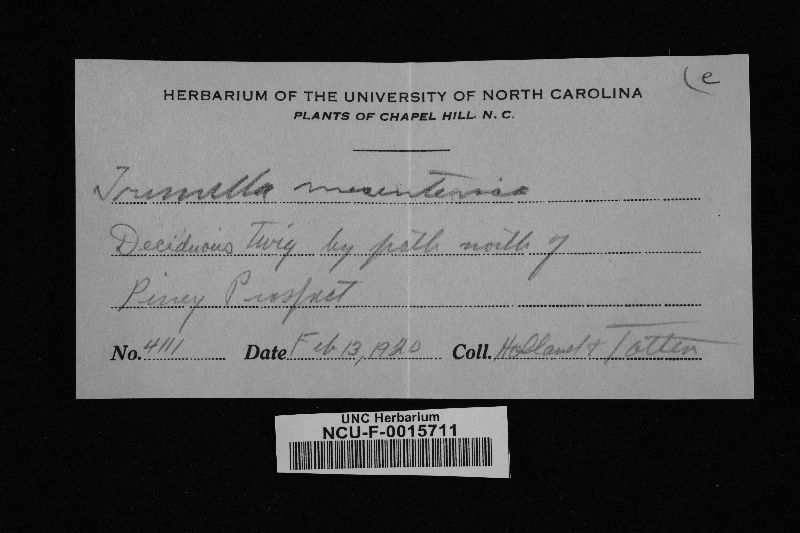 (e
HERBARIUM OF THE UNIVERSITY OF NORTH CAROLINA
PLANTS OF CHAPEL HILL. N. C.
Tremella mesenterica
Deciduous twig by path north of
Piney Prospect
No. 4111 Date Feb 13, 1920 Coll. Holland & Totten
UNC Herbarium
NCU-F-0015711